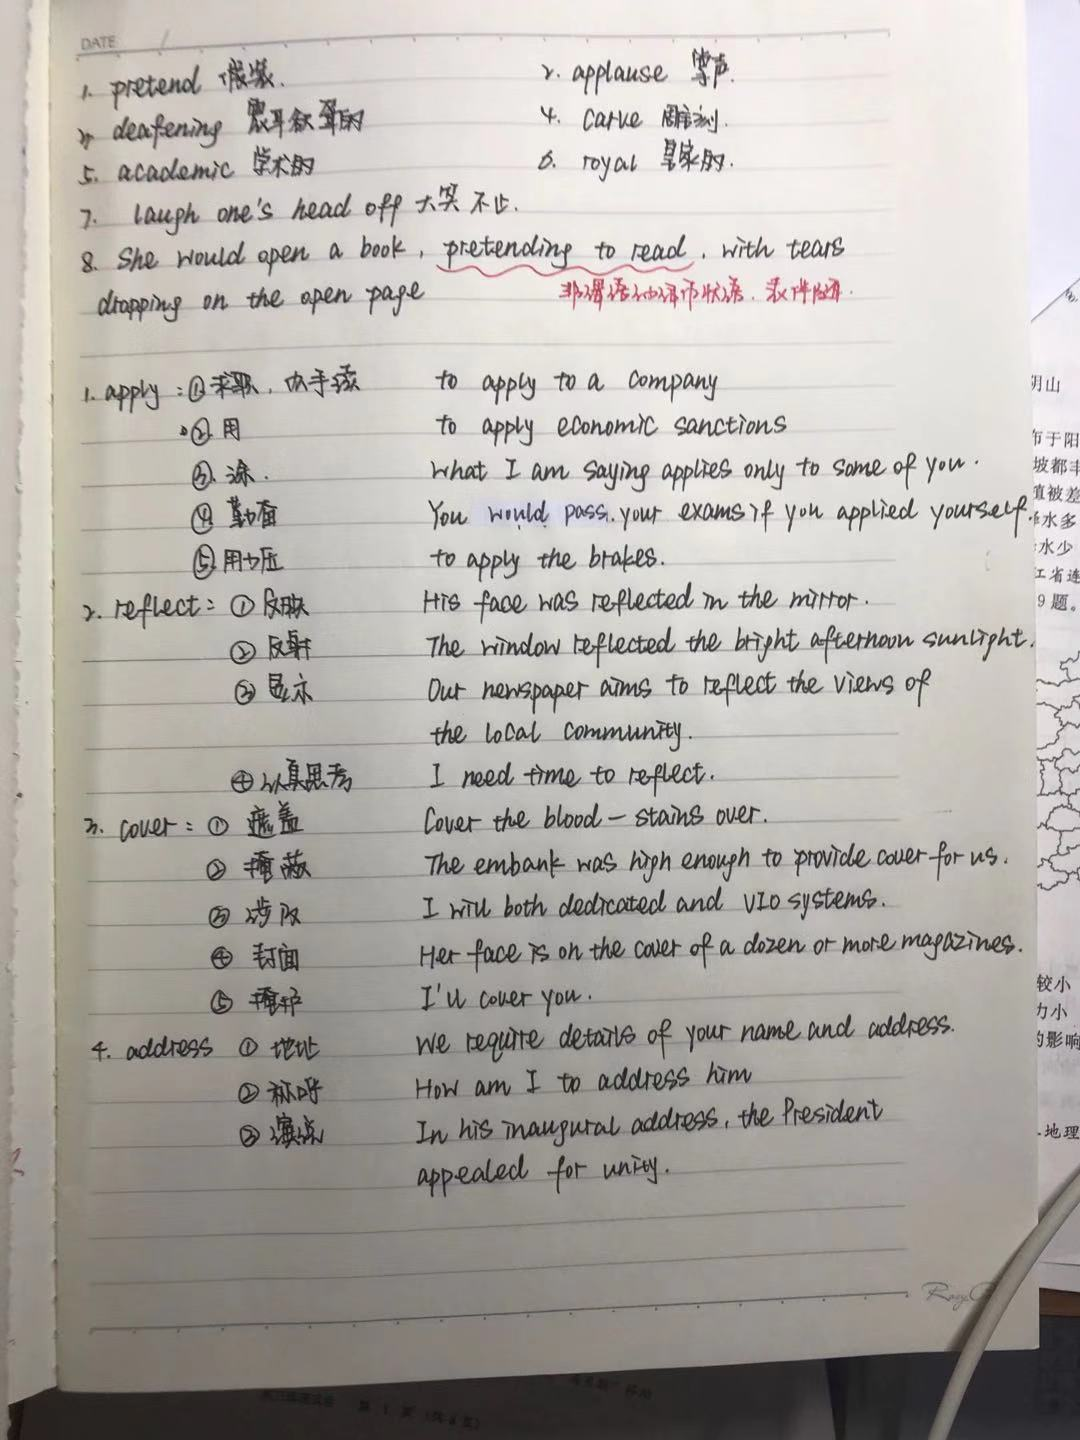 DATE /
1. pretend 假装.
2. applause 掌声.
3. deafening 震耳欲聋的
4. carve 雕刻.
5. academic 学术的
6. royal 皇家的.
7. laugh one's head off 大笑不止.
8. She would open a book, pretending to read, with tears
dropping on the open page
非谓语动词作状语, 表伴随.
1. apply: ①求职, 办手续 to apply to a company
②用 to apply economic sanctions
③涂. What I am saying applies only to some of you.
④勤奋 You would pass your exams if you applied yourself.
⑤用力压 to apply the brakes.
2. reflect: ①反映 His face was reflected in the mirror.
②反射 The window reflected the bright afternoon sunlight.
③显示 Our newspaper aims to reflect the views of
the local community.
④认真思考 I need time to reflect.
3. cover: ①遮盖 Cover the blood-stains over.
②掩蔽 The embank was high enough to provide cover for us.
③涉及 I will both dedicated and VIO systems.
④封面 Her face is on the cover of a dozen or more magazines.
⑤掩护 I'll cover you.
4. address ①地址 We require details of your name and address.
②称呼 How am I to address him
③演说 In his inaugural address, the President
appealed for unity.
阴山
布于阳
坡都丰
值被差
水多
水少
江省连
9题。
较小
力小
的影响
地理